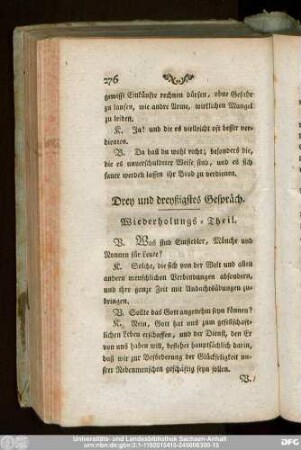 276
gewisse Einkünfte rechnen dürfen, ohne Gefahr
zu laufen, wie andre Arme, wirklichen Mangel
zu leiden.
K. Ja! und die es vielleicht oft besser ver-
dienten.
V. Da hast du wohl recht; besonders die,
die es unverschuldeter Weise sind, und es sich
sauer werden lassen ihr Brod zu verdienen.
Drey und dreyßigstes Gespräch.
Wiederholungs-Theil.
V. Was sind Einsiedler, Mönche und
Nonnen für Leute?
K. Solche, die sich von der Welt und allen
andern menschlichen Verbindungen absondern,
und ihre ganze Zeit mit Andachtsübungen zu-
bringen.
V. Sollte das Gott angenehm seyn können?
K. Nein, Gott hat uns zum gesellschaft-
lichen Leben erschaffen, und der Dienst, den Er
von uns haben will, bestehet hauptsächlich darin,
daß wir zur Beförderung der Glückseligkeit un-
srer Nebenmenschen geschäftig seyn sollen.
V.
Universitäts- und Landesbibliothek Sachsen-Anhalt
urn:nbn:de:gbv:3:1-1192015415-245606300-13
DFG